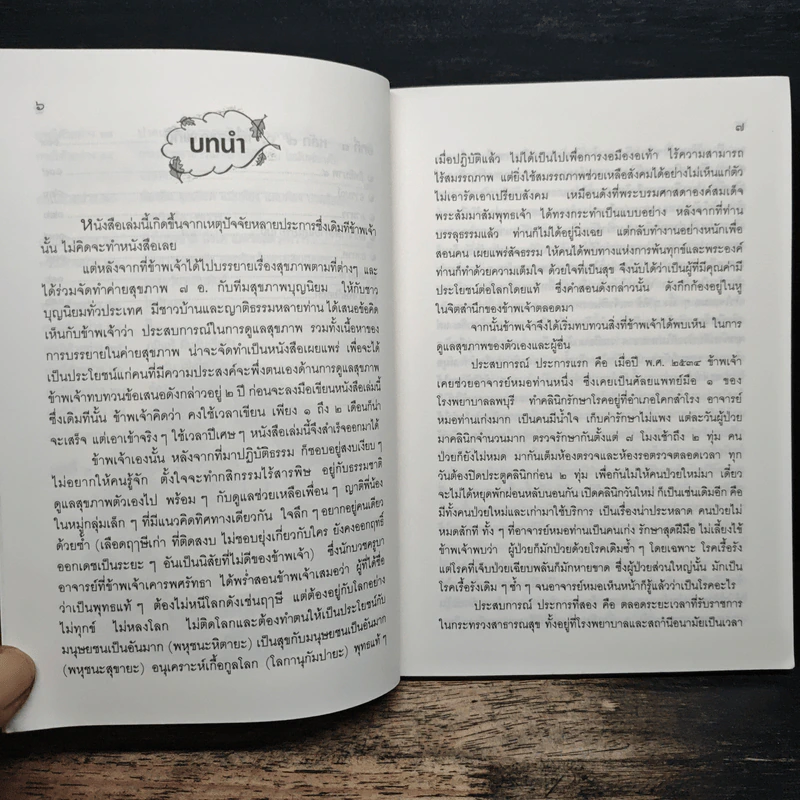 ๖
บทนำ
หนังสือเล่มนี้เกิดขึ้นจากเหตุปัจจัยหลายประการซึ่งเดิมทีข้าพเจ้า
นั้น ไม่คิดจะทำหนังสือเลย
แต่หลังจากที่ข้าพเจ้าได้ไปบรรยายเรื่องสุขภาพตามที่ต่างๆ และ
ได้ร่วมจัดทำค่ายสุขภาพ ๗ อ. กับทีมสุขภาพบุญนิยม ให้กับชาว
บุญนิยมทั่วประเทศ มีชาวบ้านและญาติธรรมหลายท่าน ได้เสนอข้อคิด
เห็นกับข้าพเจ้าว่า ประสบการณ์ในการดูแลสุขภาพ รวมทั้งเนื้อหาของ
การบรรยายในค่ายสุขภาพ น่าจะจัดทำเป็นหนังสือเผยแพร่ เพื่อจะได้
เป็นประโยชน์แก่คนที่มีความประสงค์จะพึ่งตนเองด้านการดูแลสุขภาพ
ข้าพเจ้าทบทวนข้อเสนอดังกล่าวอยู่ ๒ ปี ก่อนจะลงมือเขียนหนังสือเล่มนี้
ซึ่งเดิมทีนั้น ข้าพเจ้าคิดว่า คงใช้เวลาเขียน เพียง ๑ ถึง ๒ เดือนก็น่า
จะเสร็จ แต่เอาเข้าจริงๆ ใช้เวลาปีเศษๆ หนังสือเล่มนี้จึงสำเร็จออกมาได้
ข้าพเจ้าเองนั้น หลังจากที่มาปฏิบัติธรรม ก็ชอบอยู่สงบเงียบๆ
ไม่อยากให้คนรู้จัก ตั้งใจจะทำกสิกรรมไร้สารพิษ อยู่กับธรรมชาติ
ดูแลสุขภาพตัวเองไป พร้อมๆ กับดูแลช่วยเหลือเพื่อนๆ ญาติพี่น้อง
ในหมู่กลุ่มเล็กๆ ที่มีแนวคิดทิศทางเดียวกัน ใจลึกๆ อยากอยู่คนเดียว
ด้วยซ้ำ (เลือดฤาษีเก่า ที่ติดสงบ ไม่ชอบยุ่งเกี่ยวกับใคร ยังคงออกฤทธิ์
ออกเดชเป็นระยะๆ อันเป็นนิสัยที่ไม่ดีของข้าพเจ้า) ซึ่งนักบวชครูบา
อาจารย์ที่ข้าพเจ้าเคารพศรัทธา ได้พร่ำสอนข้าพเจ้าเสมอว่า ผู้ที่ได้ชื่อ
ว่าเป็นพุทธแท้ๆ ต้องไม่หนีโลกดังเช่นฤาษี แต่ต้องอยู่กับโลกอย่าง
ไม่ทุกข์ ไม่หลงโลก ไม่ติดโลกและต้องทำตนให้เป็นประโยชน์กับ
มนุษยชนเป็นอันมาก (พหุชนะหิตายะ) เป็นสุขกับมนุษยชนเป็นอันมาก
(พหุชนะสุขายะ) อนุเคราะห์เกื้อกูลโลก (โลกานุกัมปายะ) พุทธแท้ๆ
๗
เมื่อปฏิบัติแล้ว ไม่ได้เป็นไปเพื่อการงอมืองอเท้า ไร้ความสามารถ
ไร้สมรรถภาพ แต่ยิ่งใช้สมรรถภาพช่วยเหลือสังคมได้อย่างไม่เห็นแก่ตัว
ไม่เอารัดเอาเปรียบสังคม เหมือนดังที่พระบรมศาสดาองค์สมเด็จ
พระสัมมาสัมพุทธเจ้า ได้ทรงกระทำเป็นแบบอย่าง หลังจากที่ท่าน
บรรลุธรรมแล้ว ท่านก็ไม่ได้อยู่นิ่งเฉย แต่กลับทำงานอย่างหนักเพื่อ
สอนคน เผยแพร่สัจธรรม ให้คนได้พบทางแห่งการพ้นทุกข์และพระองค์
ท่านก็ทำด้วยความเต็มใจ ด้วยใจที่เป็นสุข จึงนับได้ว่าเป็นผู้ที่มีคุณค่ามี
ประโยชน์ต่อโลกโดยแท้ ซึ่งคำสอนดังกล่าวนั้น ดังก๊กก้องอยู่ในหู
ในจิตสำนึกของข้าพเจ้าตลอดมา
จากนั้นข้าพเจ้าจึงได้เริ่มทบทวนสิ่งที่ข้าพเจ้าได้พบเห็น ในการ
ดูแลสุขภาพของตัวเองและผู้อื่น
ประสบการณ์ ประการแรก คือ เมื่อปี พ.ศ. ๒๕๓๔ ข้าพเจ้า
เคยช่วยอาจารย์หมอท่านหนึ่ง ซึ่งเคยเป็นศัลยแพทย์มือ ๑ ของ
โรงพยาบาลลพบุรี ทำคลินิกรักษาโรคอยู่ที่อำเภอโคกสำโรง อาจารย์
หมอท่านเก่งมาก เป็นคนมีน้ำใจ เก็บค่ารักษาไม่แพง แต่ละวันผู้ป่วย
มาคลินิกจำนวนมาก ตรวจรักษากันตั้งแต่ ๗ โมงเช้าถึง ๒ ทุ่ม คน
ป่วยก็ยังไม่หมด มากันเต็มห้องตรวจและห้องรอตรวจตลอดเวลา ทุก
วันต้องปิดประตูคลินิกก่อน ๒ ทุ่ม เพื่อกันไม่ให้คนป่วยใหม่มา เดี๋ยว
จะไม่ได้หยุดพักผ่อนหลับนอนกัน เปิดคลินิกวันใหม่ ก็เป็นเช่นเดิมอีก คือ
มีทั้งคนป่วยใหม่และเก่ามาใช้บริการ เป็นเรื่องน่าประหลาด คนป่วยไม่
หมดสักที ทั้งๆ ที่อาจารย์หมอท่านเป็นคนเก่ง รักษาสุดฝีมือ ไม่เลี้ยงไข้
ข้าพเจ้าพบว่า ผู้ป่วยก็มักป่วยด้วยโรคเดิมซ้ำๆ โดยเฉพาะ โรคเรื้อรัง
แต่โรคที่เจ็บป่วยเฉียบพลันก็มักหายขาด ซึ่งผู้ป่วยส่วนใหญ่นั้น มักเป็น
โรคเรื้อรังเดิมๆ ซ้ำๆ จนอาจารย์หมอเห็นหน้าก็รู้แล้วว่าเป็นโรคอะไร
ประสบการณ์ ประการที่สอง คือ ตลอดระยะเวลาที่รับราชการ
ในกระทรวงสาธารณสุข ทั้งอยู่ที่โรงพยาบาลและสถานีอนามัยเป็นเวลา